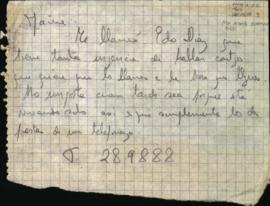 Jaime:
Me llamó Edo Diaz que
tiene tanta urgencia de hablar contigo
que quiere que lo llames a la hora que llegues
No importa cuan tarde sea porque está
solo así es que simplemente lo des
piertas con un telefonazo
T. 289888